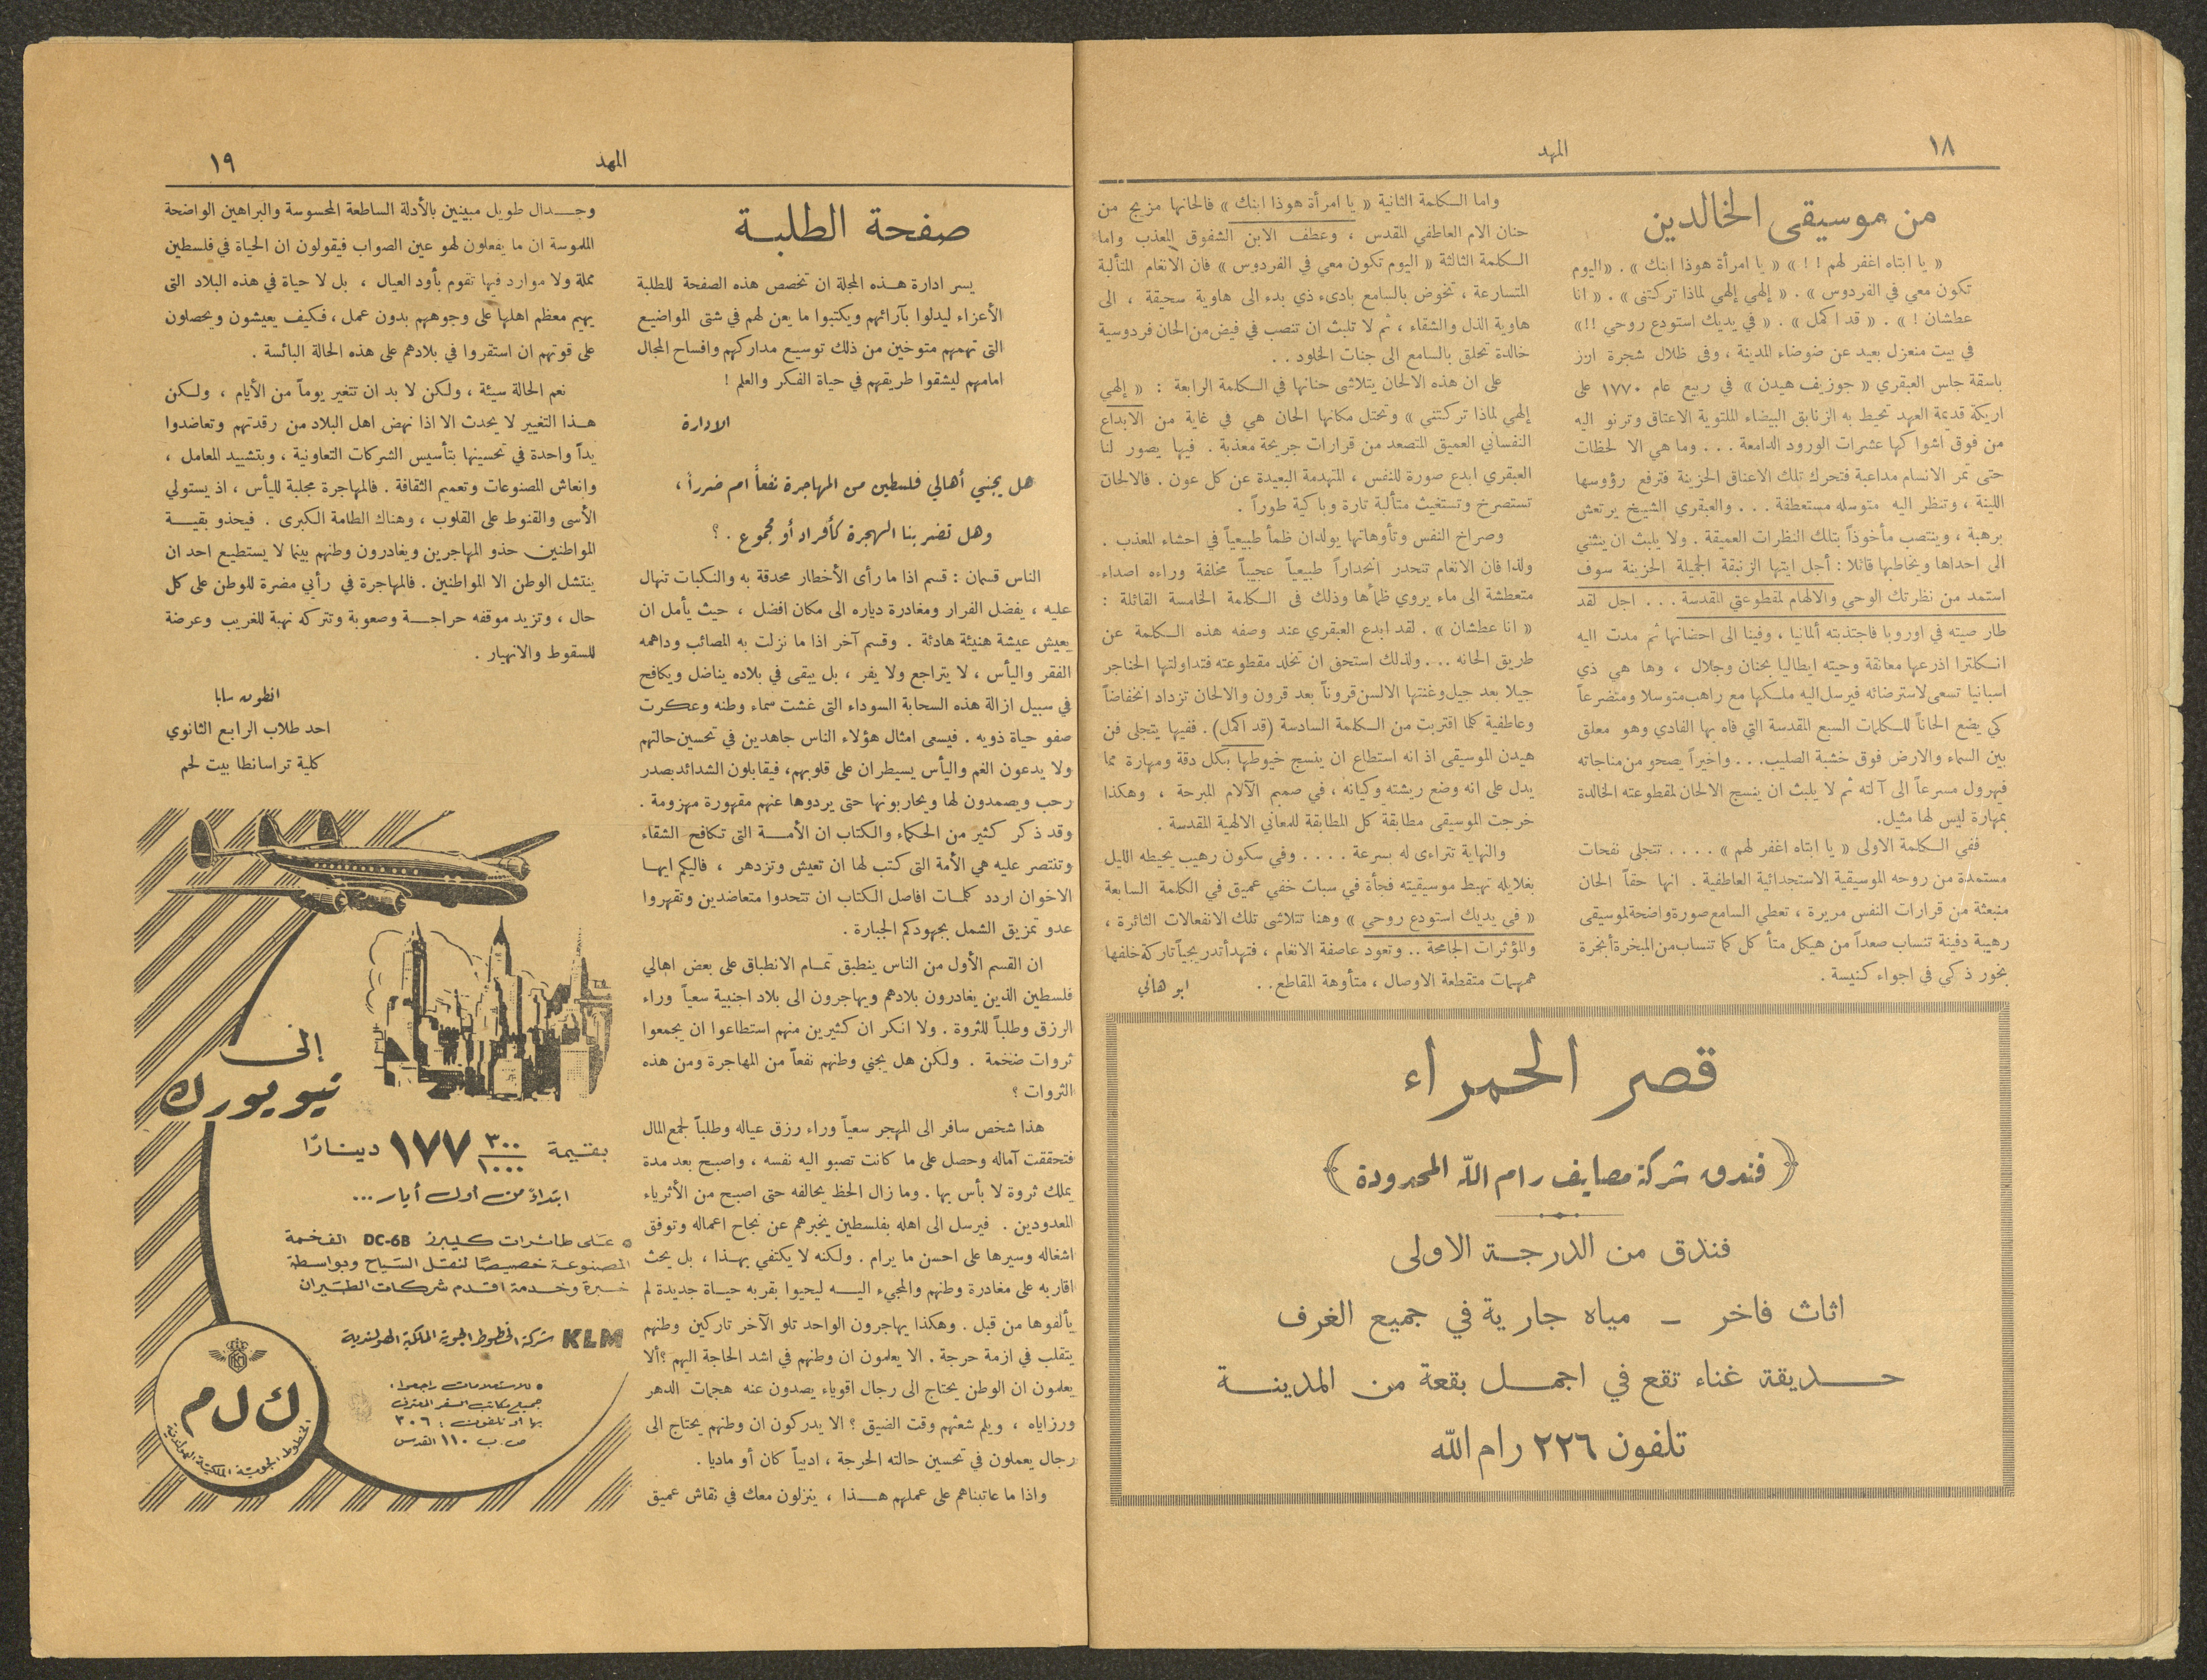 ١٨
المهد
من موسيقى الخالدين
« يا ابتاه اغفر لهم ! ! » « يا امرأة هوذا ابنك » . « اليوم
تكون معي في الفردوس » . « إلهي إلهي لماذا تركتنى » . « انا
عطشان ! » . « قد اكمل » . « في يديك استودع روحي !! »
في بيت منعزل بعيد عن ضوضاء المدينة ، وفى ظلال شجرة ارز
باسقة جلس العبقري « جوزيف هيدن » في ربيع عام ١٧٧٠ على
اريكة قديمة العهد تحيط به الزنابق البيضاء الملتوية الاعتاق وترنو اليه
من فوق اشواكها عشرات الورود الدامعة . . . وما هي الا لحظات
حتى تمر الانسام مداعبة فتحرك تلك الاعناق الحزينة فترفع رؤوسها
اللينة ، وتنظر اليه متوسله مستعطفة . . . والعبقري الشيخ يرتعش
برهبة ، وينتصب مأخوذاً بتلك النظرات العميقة . ولا يلبث ان ينثني
الى احداها ويخاطبها قائلا : أجل ايتها الزنبقة الجميلة الحزينة سوف
استمد من نظرتك الوحي والالهام لمقطوعتي المقدسة . . . اجل لقد
طار صيته في اوروبا فاجتذبته ألمانيا ، وفينا الى احضانها ثم مدت اليه
انكلترا اذرعها معانقة وحيته ايطاليا بحنان وجلال ، وها هي ذي
اسبانيا تسعى لاسترضائه فيرسل اليه ملكها مع راهب متوسلا ومتضرعاً
كي يضع الحاناً للكلمات السبع المقدسة التي فاه بها الفادي وهو معلق
بين السماء والارض فوق خشبة الصليب . . . واخيراً يصحو من مناجاته
فيهرول مسرعاً الى آلته ثم لا يلبث ان ينسج الالحان لمقطوعته الخالدة
بمهارة ليس لها مثيل .
ففي الكلمة الاولى « يا ابتاه اغفر لهم » . . . . تتجلى نفحات
مستمدة من روحه الموسيقية الاستجدائية العاطفية . انها حقاً الحان
منبعثة من قرارات النفس مريرة ، تعطي السامع صورة واضحة لموسيقى
رهيبة دفينة تنساب صعداً من هيكل متأكل كما تنساب من المبخرة أبخرة
بخور ذكي في اجواء كنيسة .
واما الكلمة الثانية « يا امرأة هوذا ابنك » فالحانها مزيج من
حنان الام العاطفي المقدس ، وعطف الابن الشفوق المعذب واما
الكلمة الثالثة « اليوم تكون معي في الفردوس » فان الانغام المتألبة
المتسارعة ، تخوض بالسامع بادىء ذي بدء الى هاوية سحيقة ، الى
هاوية الذل والشقاء ، ثم لا تلبث ان تنصب في فيض من الحان فردوسية
خالدة تحلق بالسامع الى جنات الخلود . .
على ان هذه الالحان يتلاشى حنانها في الكلمة الرابعة : « إلهي
إلهي لماذا تركتني » وتحتل مكانها الحان هي في غاية من الابداع
النفساني العميق المتصعد من قرارات جريحة معذبة . فيها يصور لنا
العبقري ابدع صورة للنفس ، المتهدمة البعيدة عن كل عون . فالالحان
تستصرخ وتستغيث متألبة تارة وباكية طوراً .
وصراخ النفس وتأوهاتها يولدان ظمأ طبيعياً في احشاء المعذب .
ولذا فان الانغام تنحدر انحداراً طبيعياً عجيباً مخلفة وراءه اصداء
متعطشة الى ماء يروي ظمأها وذلك فى الكلمة الخامسة القائلة :
« انا عطشان » . لقد ابدع العبقري عند وصفه هذه الكلمة عن
طريق الحانه . . . ولذلك استحق ان تخلد مقطوعته فتداولتها الحناجر
جيلا بعد جيل وغنتها الالسن قروناً بعد قرون والالحان تزداد انخفاضاً
وعاطفية كلما اقتربت من الكلمة السادسة (قد اكمل) . ففيها يتجلى فن
هيدن الموسيقى اذ انه استطاع ان ينسج خيوطها بكل دقة ومهارة مما
يدل على انه وضع ريشته وكيانه ، في صميم الآلام المبرحة ، وهكذا
خرجت الموسيقى مطابقة كل المطابقة للمعاني الالهية المقدسة .
والنهاية تتراءى له بسرعة . . . . وفي سكون رهيب يحيطه الليل
بغلايله تهبط موسيقيته فجأة في سبات خفي عميق في الكلمة السابعة
« في يديك استودع روحي » وهنا تتلاشى تلك الانفعالات الثائرة ،
والمؤثرات الجامحة . . وتعود عاصفة الانغام ، فتهدأ تدريجياً تاركة خلفها
همهمات متقطعة الاوصال ، متأوهة المقاطع . .
ابو هاني
قصر الحمراء
( فندق شركة مصايف رام الله المحدودة )
فندق من الدرجة الاولى
اثاث فاخر - مياه جارية في جميع الغرف
حديقة غناء تقع في اجمل بقعة من المدينة
تلفون ٢٢٦ رام الله
المهد
١٩
صفحة الطلبة
يسر ادارة هذه المجلة ان تخصص هذه الصفحة للطلبة
الأعزاء ليدلوا بآرائهم ويكتبوا ما يعن لهم في شتى المواضيع
التى تهمهم متوخين من ذلك توسيع مداركهم وافساح المجال
امامهم ليشقوا طريقهم في حياة الفكر والعلم !
الادارة
هل يجني أهالي فلسطين من المهاجرة نفعاً ام ضرراً ،
وهل تضر بنا الهجرة كأفراد أو مجموع . ؟
الناس قسمان : قسم اذا ما رأى الأخطار محدقة به والنكبات تنهال
عليه ، يفضل الفرار ومغادرة دياره الى مكان افضل ، حيث يأمل ان
يعيش عيشة هنيئة هادئة . وقسم آخر اذا ما نزلت به المصائب وداهمه
الفقر واليأس ، لا يتراجع ولا يفر ، بل يبقى في بلاده يناضل ويكافح
في سبيل ازالة هذه السحابة السوداء التى غشت سماء وطنه وعكرت
صفو حياة ذويه . فيسعى امثال هؤلاء الناس جاهدين في تحسين حالتهم
ولا يدعون الغم واليأس يسيطران على قلوبهم ، فيقابلون الشدائد بصدر
رحب ويصمدون لها ويحاربونها حتى يردوها عنهم مقهورة مهزومة .
وقد ذكر كثير من الحكماء والكتاب ان الأمة التى تكافح الشقاء
وتنتصر عليه هي الأمة التى كتب لها ان تعيش وتزدهر ، فاليكم ايها
الاخوان اردد كلمات افاصل الكتاب ان تتحدوا متعاضدين وتقهروا
عدو تمزيق الشمل بجهودكم الجبارة .
ان القسم الأول من الناس ينطبق تمام الانطباق على بعض اهالي
فلسطين الذين يغادرون بلادهم ويهاجرون الى بلاد اجنبية سعياً وراء
الرزق وطلباً للثروة . ولا انكر ان كثيرين منهم استطاعوا ان يجمعوا
ثروات ضخمة . ولكن هل يجني وطنهم نفعاً من المهاجرة ومن هذه
الثروات ؟
هذا شخص سافر الى المهجر سعياً وراء رزق عياله وطلباً لجمع المال
فتحققت آماله وحصل على ما كانت تصبو اليه نفسه ، واصبح بعد مدة
يملك ثروة لا بأس بها . وما زال الحظ يحالفه حتى اصبح من الأثرياء
المعدودين . فيرسل الى اهله بفلسطين يخبرهم عن نجاح اعماله وتوفق
اشغاله وسيرها على احسن ما يرام . ولكنه لا يكتفي بهذا ، بل يحث
اقاربه على مغادرة وطنهم والمجيء اليه ليحيوا بقربه حياة جديدة لم
يألفوها من قبل . وهكذا يهاجرون الواحد تلو الآخر تاركين وطنهم
يتقلب في ازمة حرجة . الا يعلمون ان وطنهم في اشد الحاجة اليهم ؟ ألا
يعلمون ان الوطن يحتاج الى رجال اقوياء يصدون عنه هجمات الدهر
ورزاياه ، ويلم شعثهم وقت الضيق ؟ الا يدركون ان وطنهم يحتاج الى
رجال يعملون في تحسين حالته الحرجة ، ادبياً كان أو ماديا .
واذا ما عاتبناهم على عملهم هذا ، ينزلون معك في نقاش عميق
وجدال طويل مبينين بالأدلة الساطعة المحسوسة والبراهين الواضحة
الملموسة ان ما يفعلون لهو عين الصواب فيقولون ان الحياة في فلسطين
مملة ولا موارد فيها تقوم بأود العيال ، بل لا حياة في هذه البلاد التى
يهيم معظم اهلها على وجوههم بدون عمل ، فكيف يعيشون ويحصلون
على قوتهم ان استقروا في بلادهم على هذه الحالة البائسة .
نعم الحالة سيئة ، ولكن لا بد ان تتغير يوماً من الأيام ، ولكن
هذا التغيير لا يحدث الا اذا نهض اهل البلاد من رقدتهم وتعاضدوا
يداً واحدة في تحسينها بتأسيس الشركات التعاونية ، وبتشييد المعامل ،
وانعاش المصنوعات وتعميم الثقافة . فالمهاجرة مجلبة لليأس ، اذ يستولي
الأسى والقنوط على القلوب ، وهناك الطامة الكبرى . فيحذو بقية
المواطنين حذو المهاجرين ويغادرون وطنهم بينما لا يستطيع احد ان
ينتشل الوطن الا المواطنين . فالمهاجرة في رأيي مضرة للوطن على كل
حال ، وتزيد موقفه حراجة وصعوبة وتتركه نهبة للغريب وعرضة
للسقوط والانهيار .
انطون سابا
احد طلاب الرابع الثانوي
كلية تراسانطا بيت لحم
إلى
نيويورك
بقيمة ٣٠٠/١٠٠٠ ١٧٧ دينارًا
ابتداءً من أول أيار ...
على طائرات كليبر DC-6B الفخمة
المصنوعة خصيصًا لنقل السياح وبواسطة
خبرة وخدمة اقدم شركات الطيران
KLM شركة الخطوط الجوية الملكية الهولندية
للاستعلامات راجعوا :
جميع مكاتب السفر المعترف
بها او تلفون : ٣٠٦
ص . ب ١١٠ القدس
ك ل م
الخطوط الجوية الملكية الهولندية